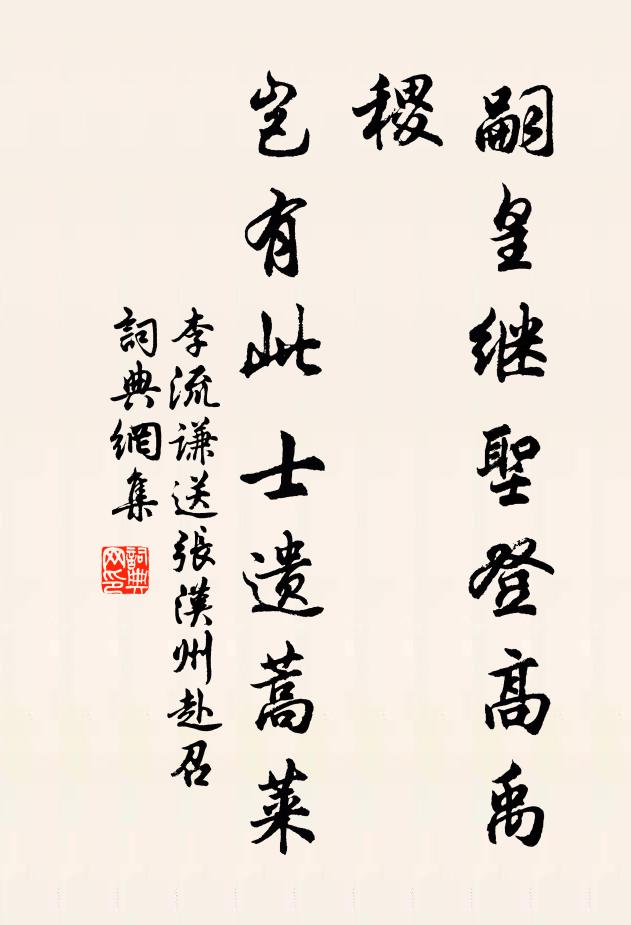 嗣皇继聖登高禹
稷
岂有此士遗蒿莱
李流谦送張漢州赴召
詞典網集
詞典
网印